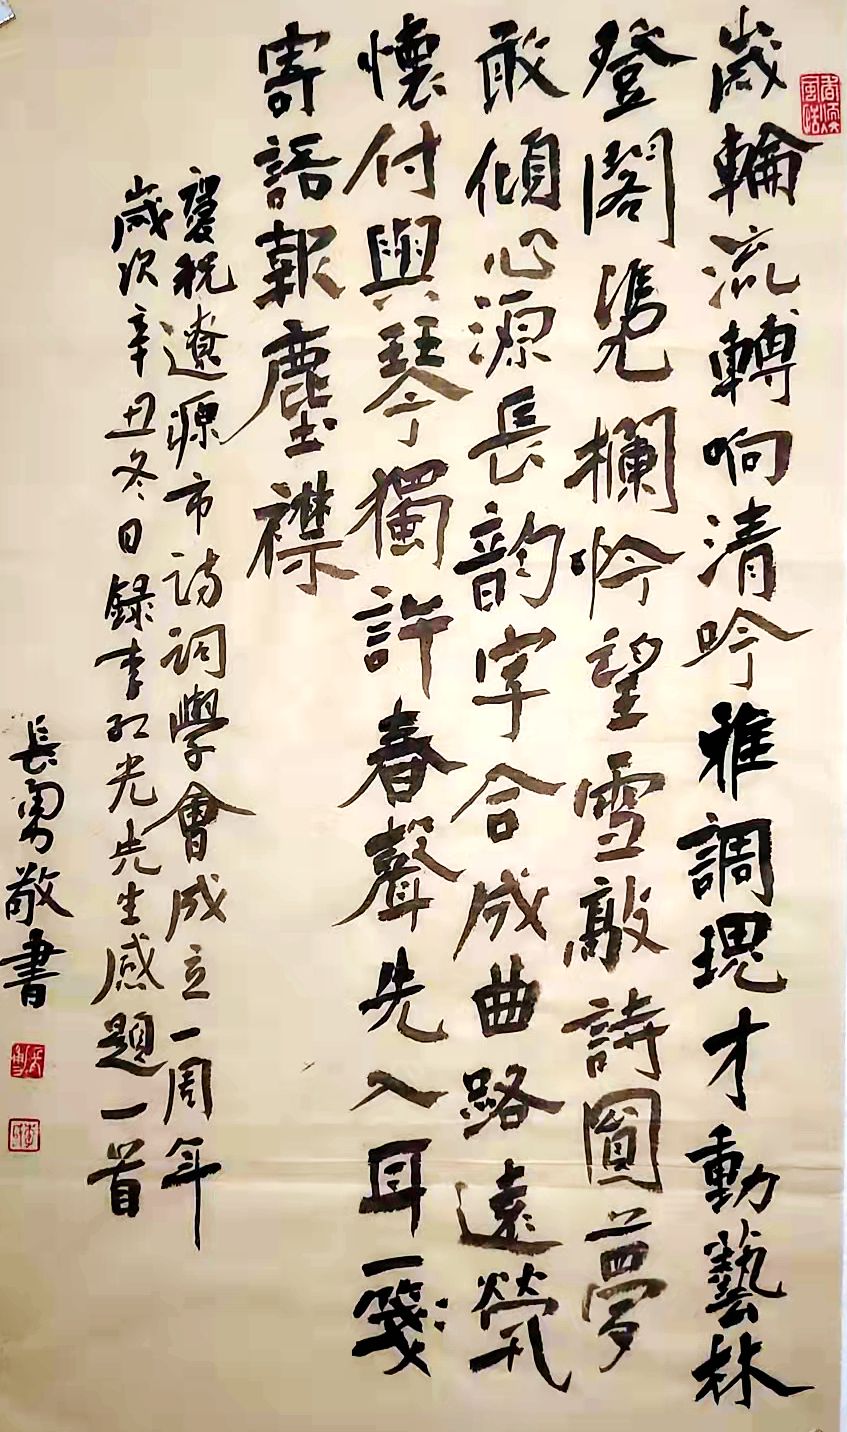 歲輪流轉响清吟雅調瑰才動藝林
登閣凭欄吟望雪敲詩圓夢
敢傾心源長韵字合成曲路遠縈
懷付與琴獨許春聲先入耳一箋
寄語報塵襟
慶祝遼源市詩词學會成立一周年
歲次辛丑冬日録李红光先生感題一首
長勇敬書